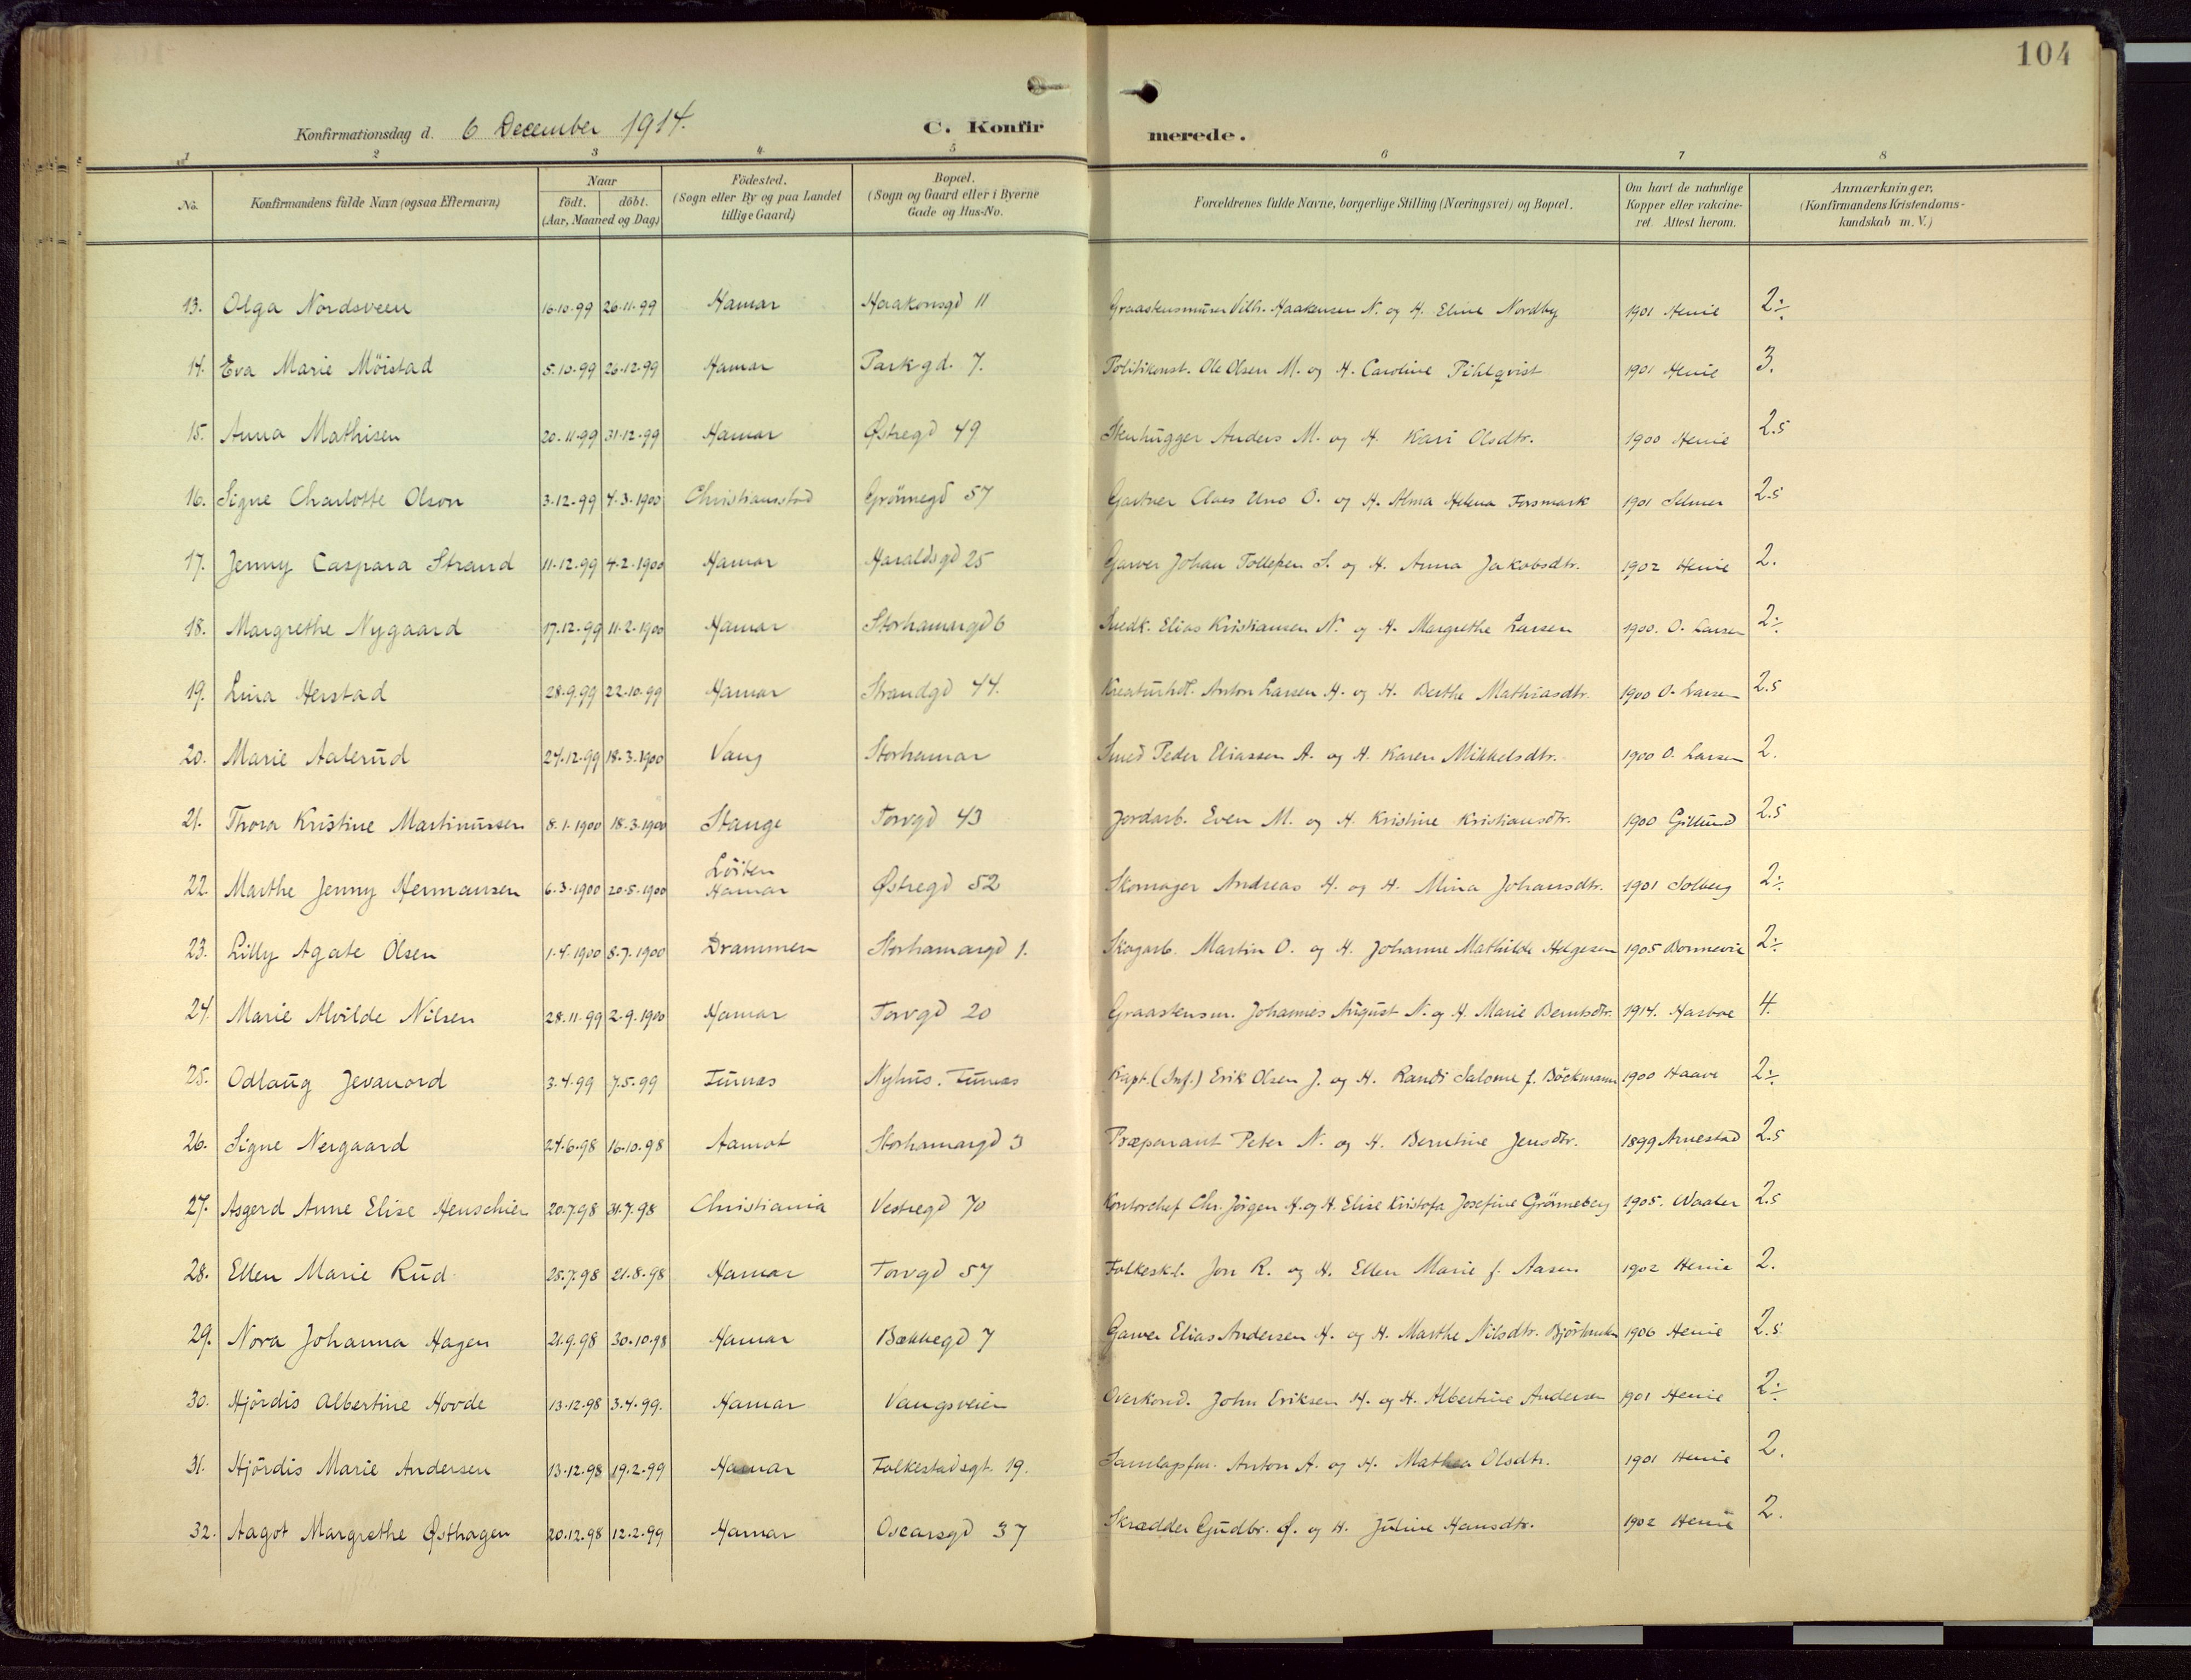 104
Konfirmationsdag d. 6 December 1914. C. Konfirmerede.
1 2 3 4 5 6 7 8
No. Konfirmandens fulde Navn (ogsaa Efternavn) Naar födt. döbt. (Aar, Maaned og Dag) Födested. (Sogn eller By og paa Landet tillige Gaard) Bopæl. (Sogn og Gaard eller i Byerne Gade og Hus-No. Forældrenes fulde Navne, borgerlige Stilling (Næringsvei) og Bopæl. Om havt de naturlige Kopper eller vakcineret. Attest herom. Anmærkninger. (Konfirmandens Kristendomskundskab m. V.)
13. Olga Nordsveen 16.10.99 26.11.99 Hamar Haakonsgd 11 Graastensmurer Vilh. Haakensen N. og H. Eline Nordby 1901 Henie 2÷
14. Eva Marie Möistad 5.10.99 26.12.99 Hamar Parkgd. 7. Politikonst. Ole Olsen M. og H. Caroline Pihlqvist 1901 Henie 3.
15. Anna Mathisen 20.11.99 31.12.99 Hamar Østregd 49 Stenhugger Anders M. og H. Kari Olsdtr. 1900 Henie 2.5
16. Signe Charlotte Olson 3.12.99 4.3.1900 Christiansstad Grönnegd 57 Gartner Claes Uno O. og H. Alma Helena Forsmark 1901 Selmer 2.5
17. Jenny Caspara Strand 11.12.99 4.2.1900 Hamar Haraldsgd 25 Garver Johan Tollefsen S. og H. Anna Jakobsdtr. 1902 Henie 2.
18. Margrethe Nygaard 17.12.99 11.2.1900 Hamar Storhamargd 6 Snedk. Elias Kristiansen N. og H. Margrethe Larsen 1900. O. Larsen 2÷
19. Lina Herstad 28.9.99 22.10.99 Hamar Strandgd 44. Kreaturhdl. Anton Larsen H. og H. Berthe Mathiasdtr. 1900 O. Larsen 2.5
20. Marie Aalerud 27.12.99 18.3.1900 Vang Storhamar Smed Peder Eliassen A. og H. Karen Mikkelsdtr. 1900 O. Larsen 2.
21. Thora Kristine Martinussen 8.1.1900 18.3.1900 Stange Torvgd 43 Jordarb. Even M. og H. Kristine Kristiansdtr. 1900 Gillund 2.5
22. Marthe Jenny Hermansen 6.3.1900 20.5.1900 Löiten Hamar Østregd 52 Skomager Andreas H. og H. Mina Johansdtr. 1901 Solberg 2÷
23. Lilly Agate Olsen 1.4.1900 8.7.1900 Drammen Storhamargd 1. Skogarb. Martin O. og H. Johanne Mathilde Helgesen 1905 Bonnevie 2÷
24. Marie Alvilde Nilsen 28.11.99 2.9.1900 Hamar Torvgd 20 Graastensm. Johannes August N. og H. Marie Berntsdtr. 1914. Harboe 4.
25. Odlaug Jevanord 3.4.99 7.5.99 Furnes Nyhus. Furnes Kapt. (Inf.) Erik Olsen J. og H. Randi Salome f. Böckmann 1900 Haave 2÷
26. Signe Nergaard 24.6.98 16.10.98 Aamot Storhamargd 3 Præparant Peter N. og H. Berntine Jensdtr. 1899 Arnestad 2.5
27. Asgerd Anne Elise Henschien 20.7.98 31.7.98 Christiania Vestregd 70 Kontorchef Chr. Jörgen H. og H. Elise Kristofa Josefine Grönneberg 1905. Waaler 2.5
28. Ellen Marie Rud 25.7.98 21.8.98 Hamar Torvgd 57 Folkeskl. Jon R. og H. Ellen Marie f. Aasen 1902 Henie 2.
29. Nora Johanna Hagen 21.9.98 30.10.98 Hamar Bækkegd 7 Garver Elias Andersen H. og H. Marthe Nilsdtr. 1906 Henie 2.5
30. Hjördis Albertine Hovde 13.12.98 3.4.99. Hamar Vangsveien Overkond. John Eriksen H. og H. Albertine Andersen 1901 Henie 2÷
31. Hjördis Marie Andersen 13.12.98 19.2.99 Hamar Folkestadsgt. 19. Samlagsfm. Anton A. og H. Mathea Olsdtr. 1901 Henie 2.
32. Aagot Margrethe Østhagen 20.12.98 12.2.99 Hamar Oscarsgd 37 Skrædder Gudbr. Ø. og H. Juline Hansdtr. 1902 Henie 2.